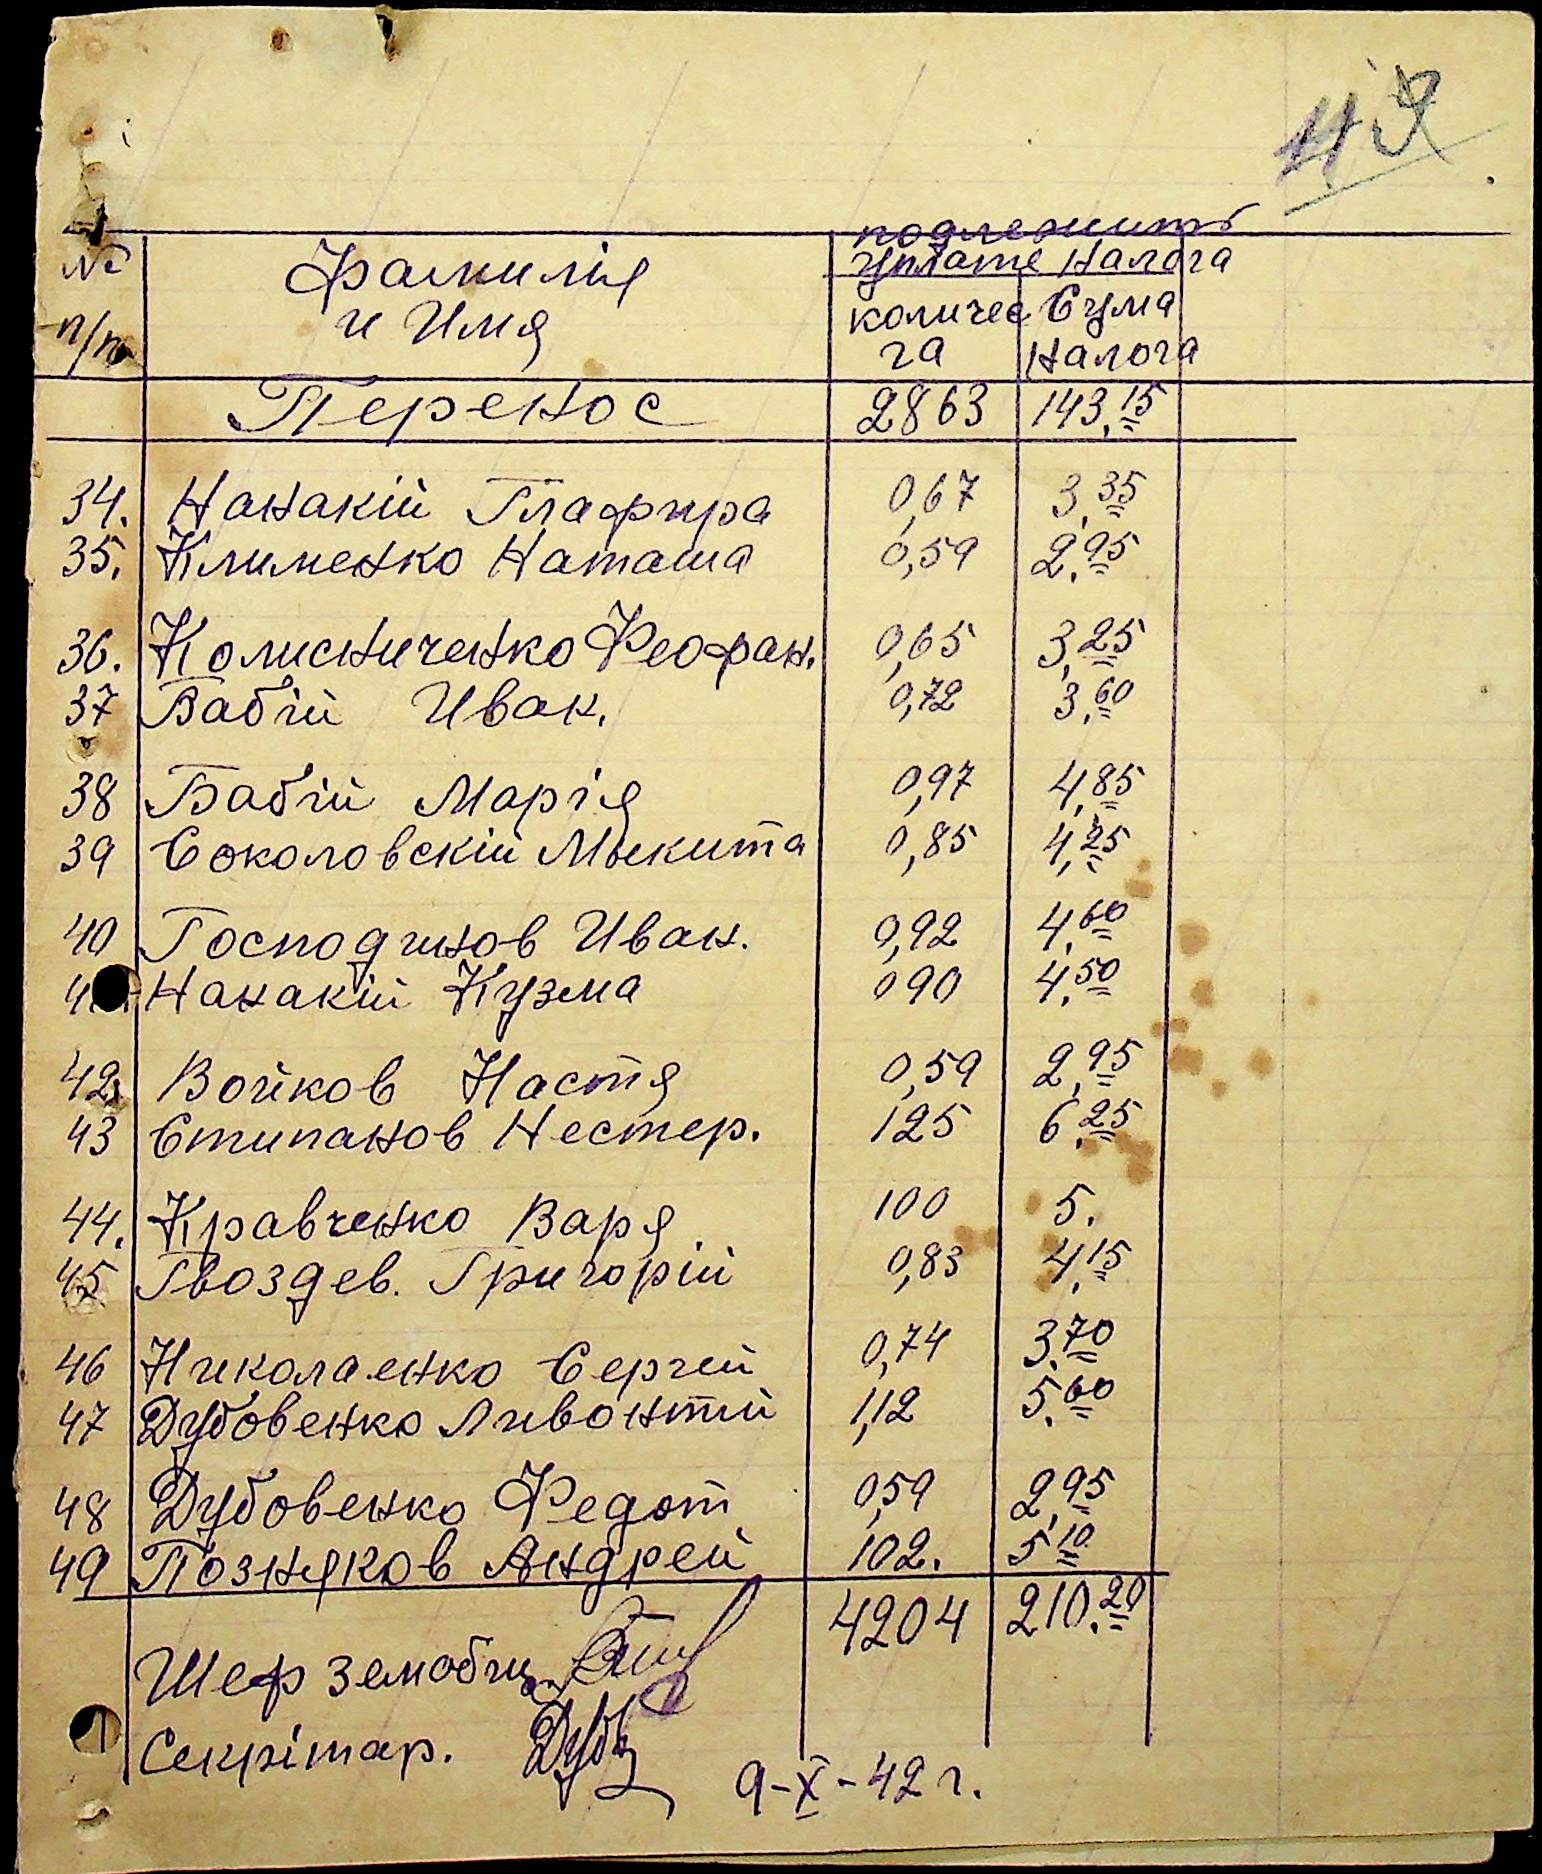 № п/п
Фамилія
и Имя
подлежить
уплате Налога
количес
га
Сума
Налога
Перенос 2863 143.15
34. Нанакій Глафира 0,67 3,35
35. Клименко Наташа 0,59 2.95
36. Колисниченко Феофан. 0,65 3,25
37 Бабій Иван. 0,72 3.60
38 Бабій Марія 0,97 4,85
39 Соколовскій Мыкита 0,85 4,25
40 Господинов Иван. 0,92 4.60
Нанакій Кузма 090 4.50
42. Войков Настя 0,59 2,95
43 Стипанов Нестер. 125 6.25
44. Кравченко Варя 100 5.
45 Гвоздев. Григорій 0,83 4,15
46 Николаенко Сергей 0,74 3.70
47 Дубовенко Ливонтій 1,12 5.60
48 Дубовенко Федот 0,59 2,95
49 Позняков Андрей 102. 5 10
4204 210.20
Шеф земобщ.
Секрітар.
9-X-42 г.